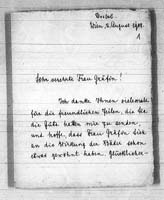 Wien, 2. August 1901.
1
Sehr verehrte Frau Gräfin!
Ich danke Ihnen vielmals
für die freundlichen Zeilen, die Sie
die Güte hatten mir zu senden,
und hoffe, dass Frau Gräfin, Sich
an die Wirkung der Bäder schon
etwas gewöhnt haben.